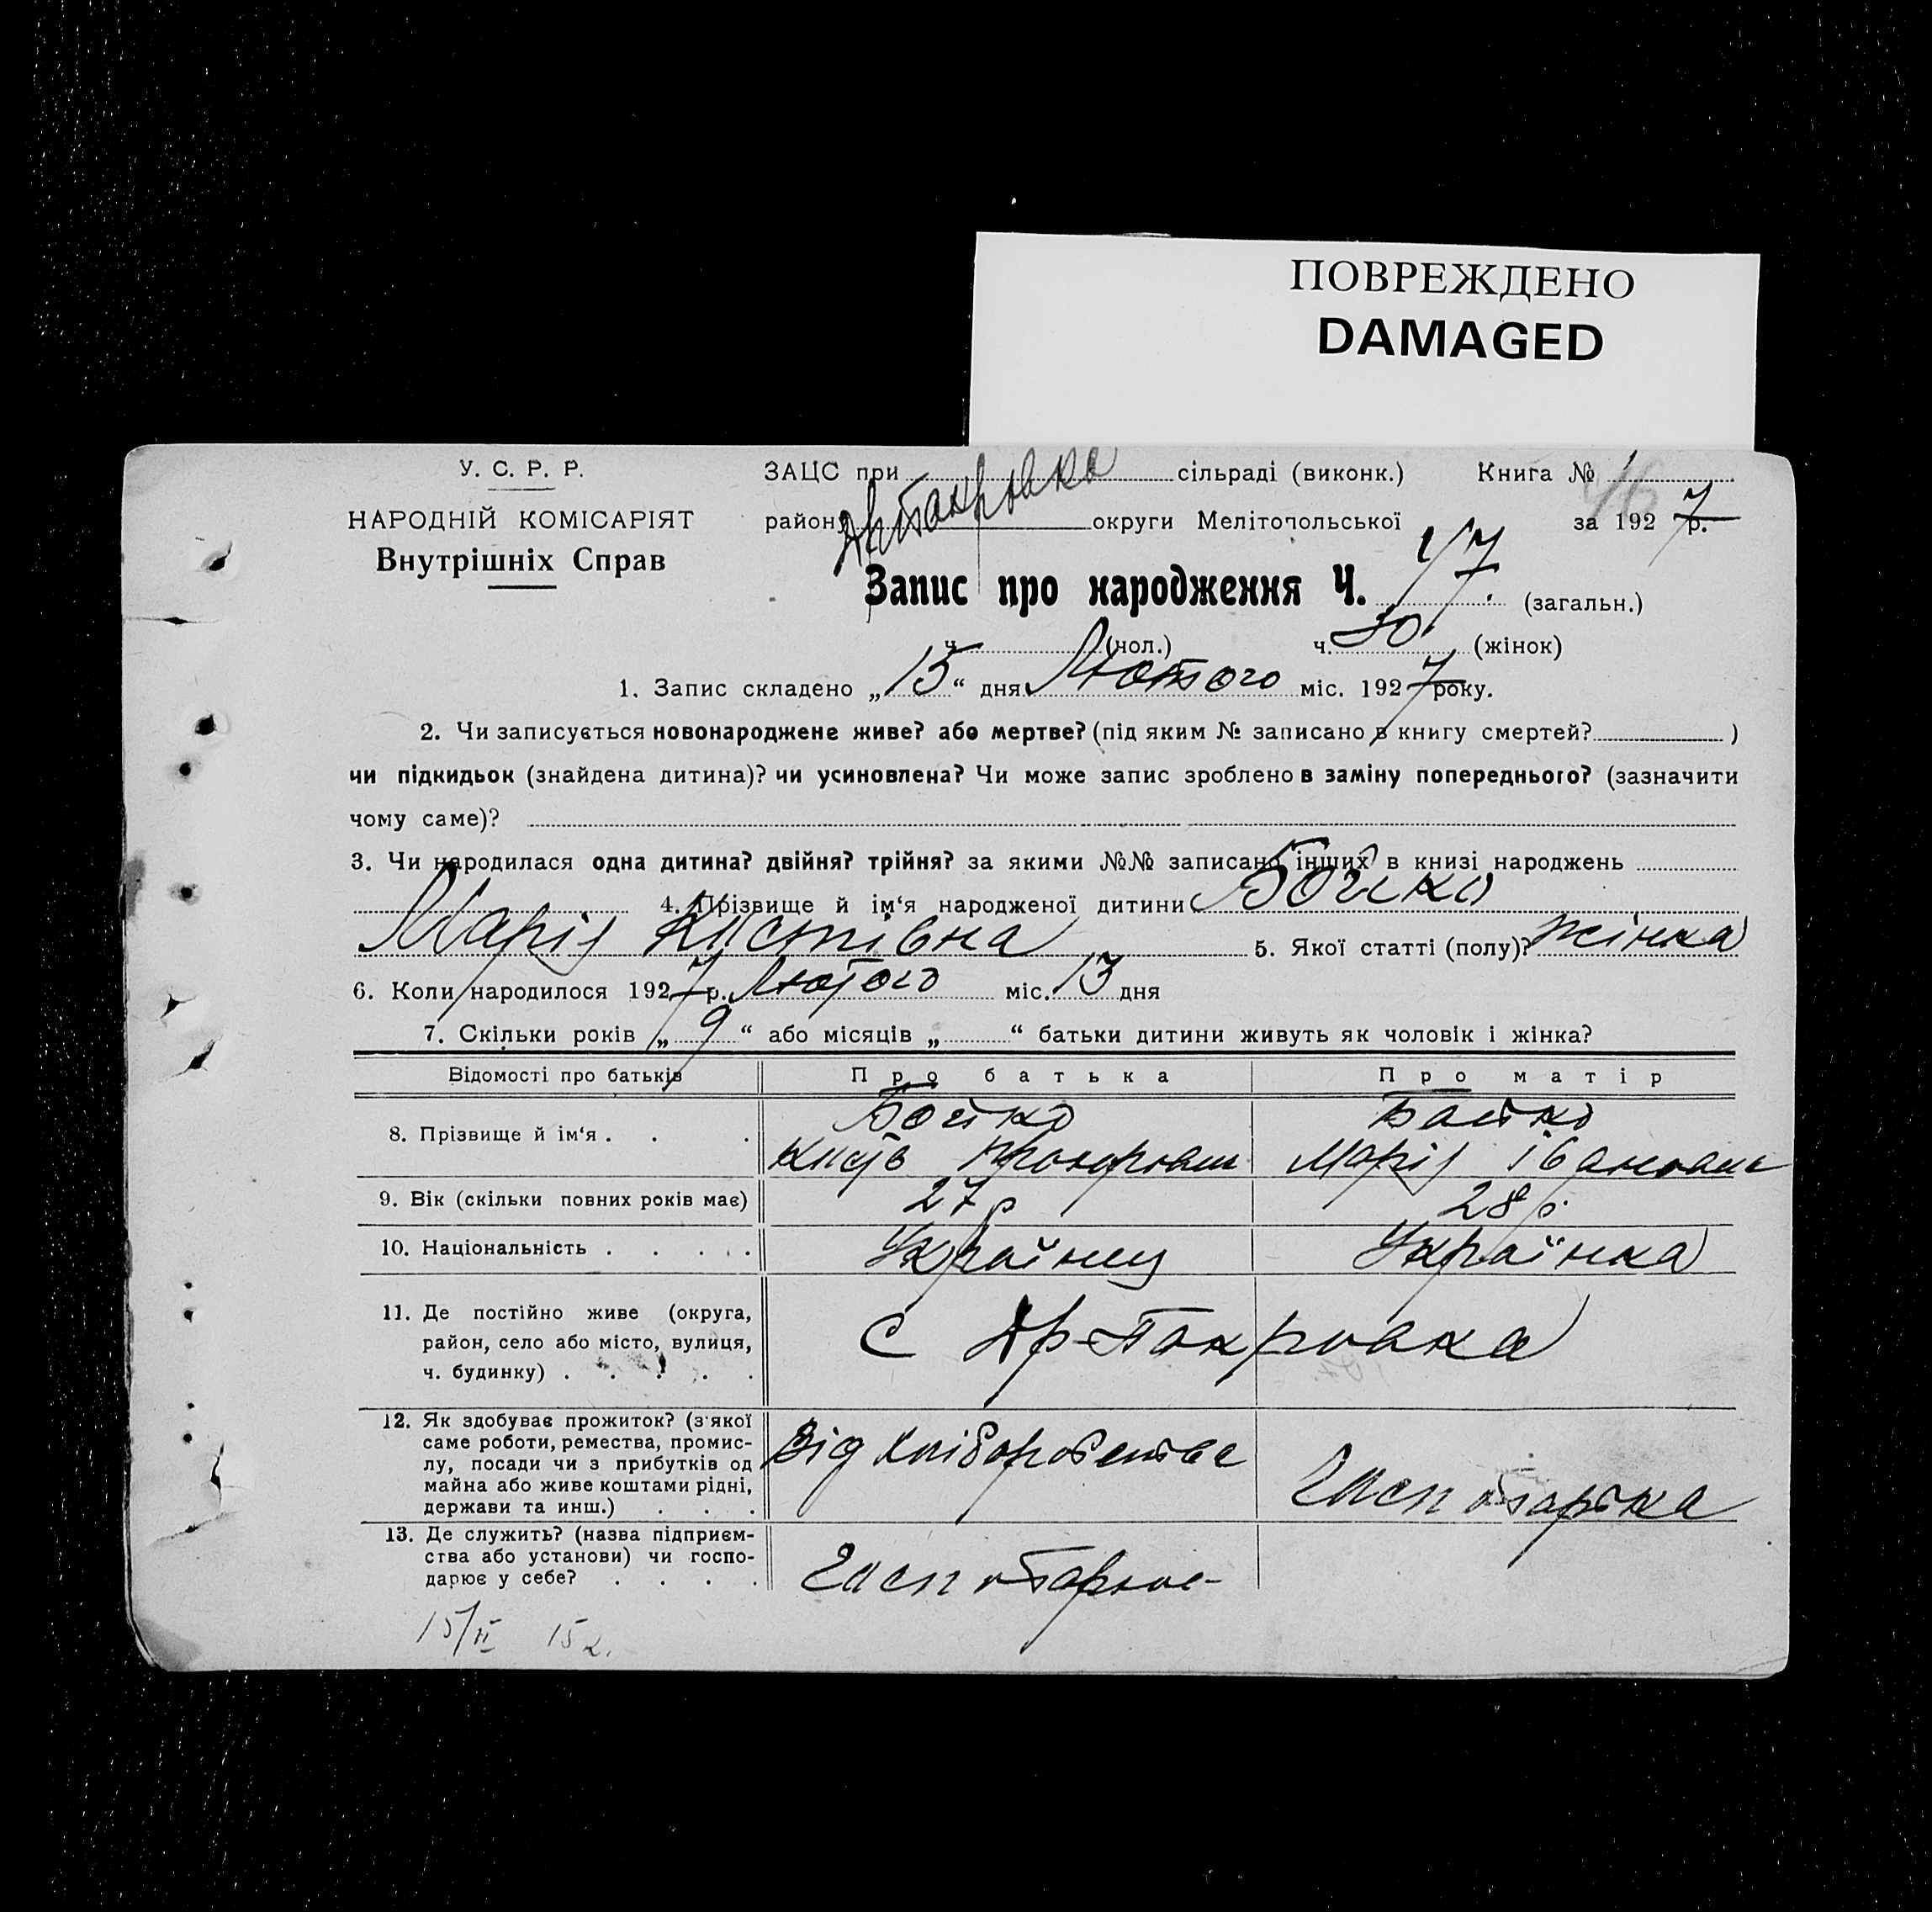 ПОВРЕЖДЕНО
DAMAGED
У. С. Р. Р.
НАРОДНІЙ КОМІСАРІЯТ
Внутрішніх Справ
ЗАЦС при сільраді (виконк.) Книга № 1
район округи Мелітопольської за 1927 р.
Запис про народження Ч. 77. (загальн.)
ч. (чол.) ч. 30. (жінок)
1. Запис складено „15“ дня Лютого міс. 1927 року.
2. Чи записується новонароджене живе? або мертве? (під яким № записано в книгу смертей? )
чи підкидьок (знайдена дитина)? чи усиновлена? Чи може запис зроблено в заміну попереднього? (зазначити
чому саме)?
3. Чи народилася одна дитина? двійня? трійня? за якими №№ записано інших в книзі народжень
4. Прізвище й ім‘я народженої дитини Бойко
Марія Костівна 5. Якої статті (полу)? жінка
6. Коли народилося 1927 р. Лютого міс. 13 дня
7. Скільки років „9“ або місяців „ “ батьки дитини живуть як чоловік і жінка?
Відомості про батьків Про батька Про матір
8. Прізвище й ім‘я . . . Бойко Бойко
Марія Івановна
9. Вік (скільки повних років має) 27 р 28 р.
10. Національність . . . . . Українец Українка
11. Де постійно живе (округа,
район, село або місто, вулиця,
ч. будинку) . . . . . с Ар-Покровка
12. Як здобуває прожиток? (з якої
саме роботи, ремества, промис-
лу, посади чи з прибутків од
майна або живе коштами рідні,
держави та инш.) . . . Від хліборобства Господарка
13. Де служить? (назва підприєм-
ства або установи) чи госпо-
дарює у себе? . . . . Господарює
15/II 15 к.